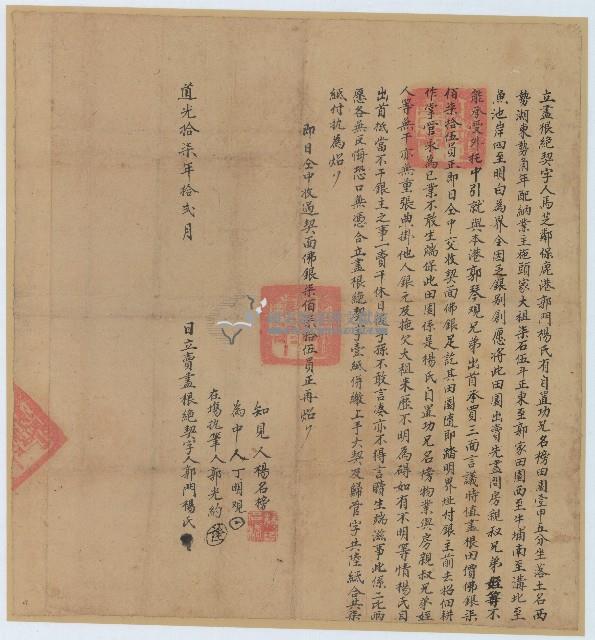 立盡根絕契字人馬芝鄰保鹿港郭門楊氏有自置功兄名榜田園壹甲五分坐落土名西
勢湖東勢角年配納業主施頭家大租柒石伍斗正東至郭家田園西至牛埔南至溝北至
魚池岸四至明白為界今因乏銀別創愿將此田園出賣先盡問房親叔兄弟姪等不
能承受外托中引就與本港郭琴觀兄弟出首承買三面言議時值盡根田價佛銀柒
佰柒拾伍員正即日仝中交收契面佛銀足訖其田園隨即踏明界址付銀主前去招佃耕
作掌管永為己業不敢生端保此田園係是楊氏自置功兄名榜物業與房親叔兄弟姪
人等無干亦無重張典掛他人銀元及拖欠大租來歷不明為碍如有不明等情楊氏自
出首抵當不干銀主之事一賣千休日後子孫不敢言湊亦不得言贖生端滋事此係二比兩
愿各無反悔恐口無憑合立盡根絕契字壹紙併繳上手大契及歸管字共陸紙合共柒
紙付執為炤
即日仝中收過契面佛銀柒佰柒拾伍員正再炤
知見人楊名榜
為中人丁明觀
在塲執筆人郭光約
道光拾柒年拾弍月 日立賣盡根絕契字人郭門楊氏